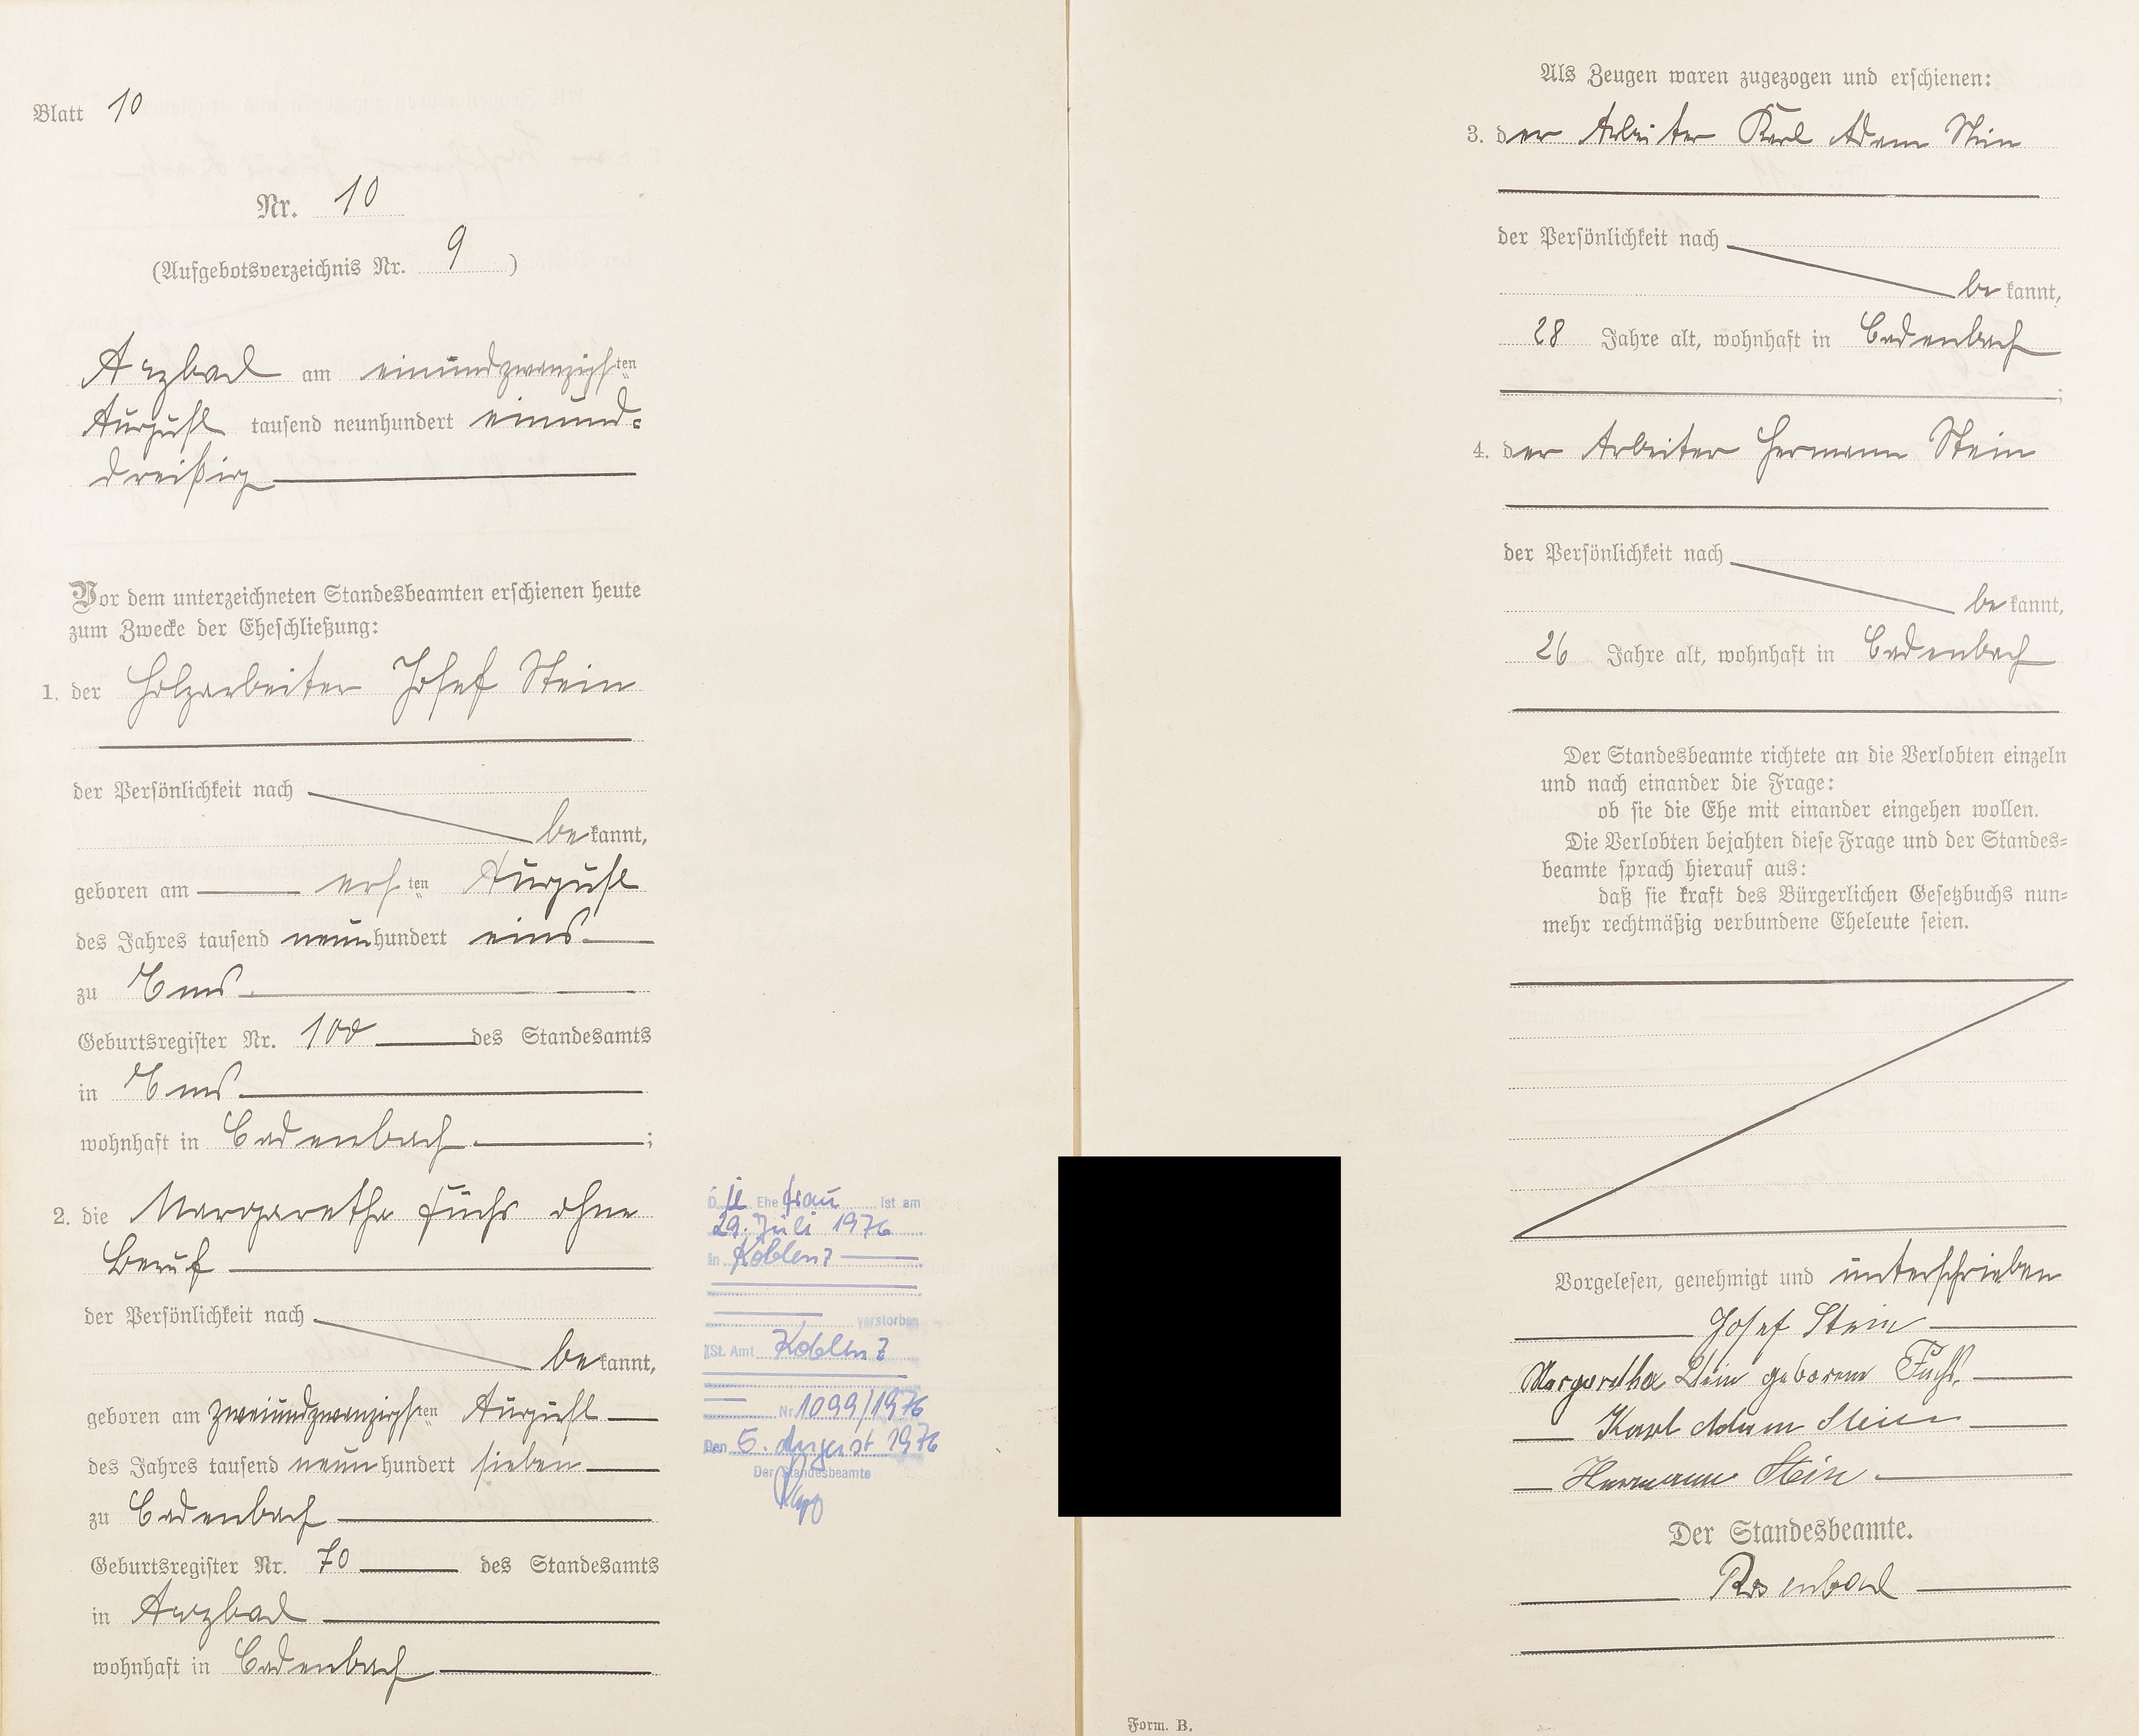 Blatt 10
Nr. 10
(Aufgebotsverzeichnis Nr. 9)
Arzbach am einundzwanzigsten
August tausend neunhundert einund=
dreißig
Vor dem unterzeichneten Standesbeamten erschienen heute
zum Zwecke der Eheschließung:
1. der Holzarbeiter Josef Stein
der Persönlichkeit nach
bekannt,
geboren am ersten August
des Jahres tausend neunhundert eins
zu Ems
Geburtsregister Nr. 100 des Standesamts
in Ems
wohnhaft in Cadenbach;
2. die Margaretha Fuchs ohne
Beruf
der Persönlichkeit nach
bekannt,
geboren am zweiundzwanzigsten August
des Jahres tausend neunhundert sieben
zu Cadenbach
Geburtsregister Nr. 70 des Standesamts
in Arzbach
wohnhaft in Cadenbach
Die Ehefrau ist am
29. Juli 1976
in Koblenz
verstorben
St. Amt Koblenz
Nr. 1099/1976
Den 5. August 1976
Der Standesbeamte
Als Zeugen waren zugezogen und erschienen:
3. der Arbeiter Karl Adam Stein
der Persönlichkeit nach
bekannt,
28 Jahre alt, wohnhaft in Cadenbach
;
4. der Arbeiter Hermann Stein
der Persönlichkeit nach
bekannt,
26 Jahre alt, wohnhaft in Cadenbach
Der Standesbeamte richtete an die Verlobten einzeln
und nach einander die Frage:
ob sie die Ehe mit einander eingehen wollen.
Die Verlobten bejahten diese Frage und der Standes=
beamte sprach hierauf aus:
daß sie kraft des Bürgerlichen Gesetzbuchs nun=
mehr rechtmäßig verbundene Eheleute seien.
Vorgelesen, genehmigt und unterschrieben
Josef Stein
Margaretha Stein geborene Fuchs.
Karl Adam Stein
Hermann Stein
Der Standesbeamte.
Form. B.